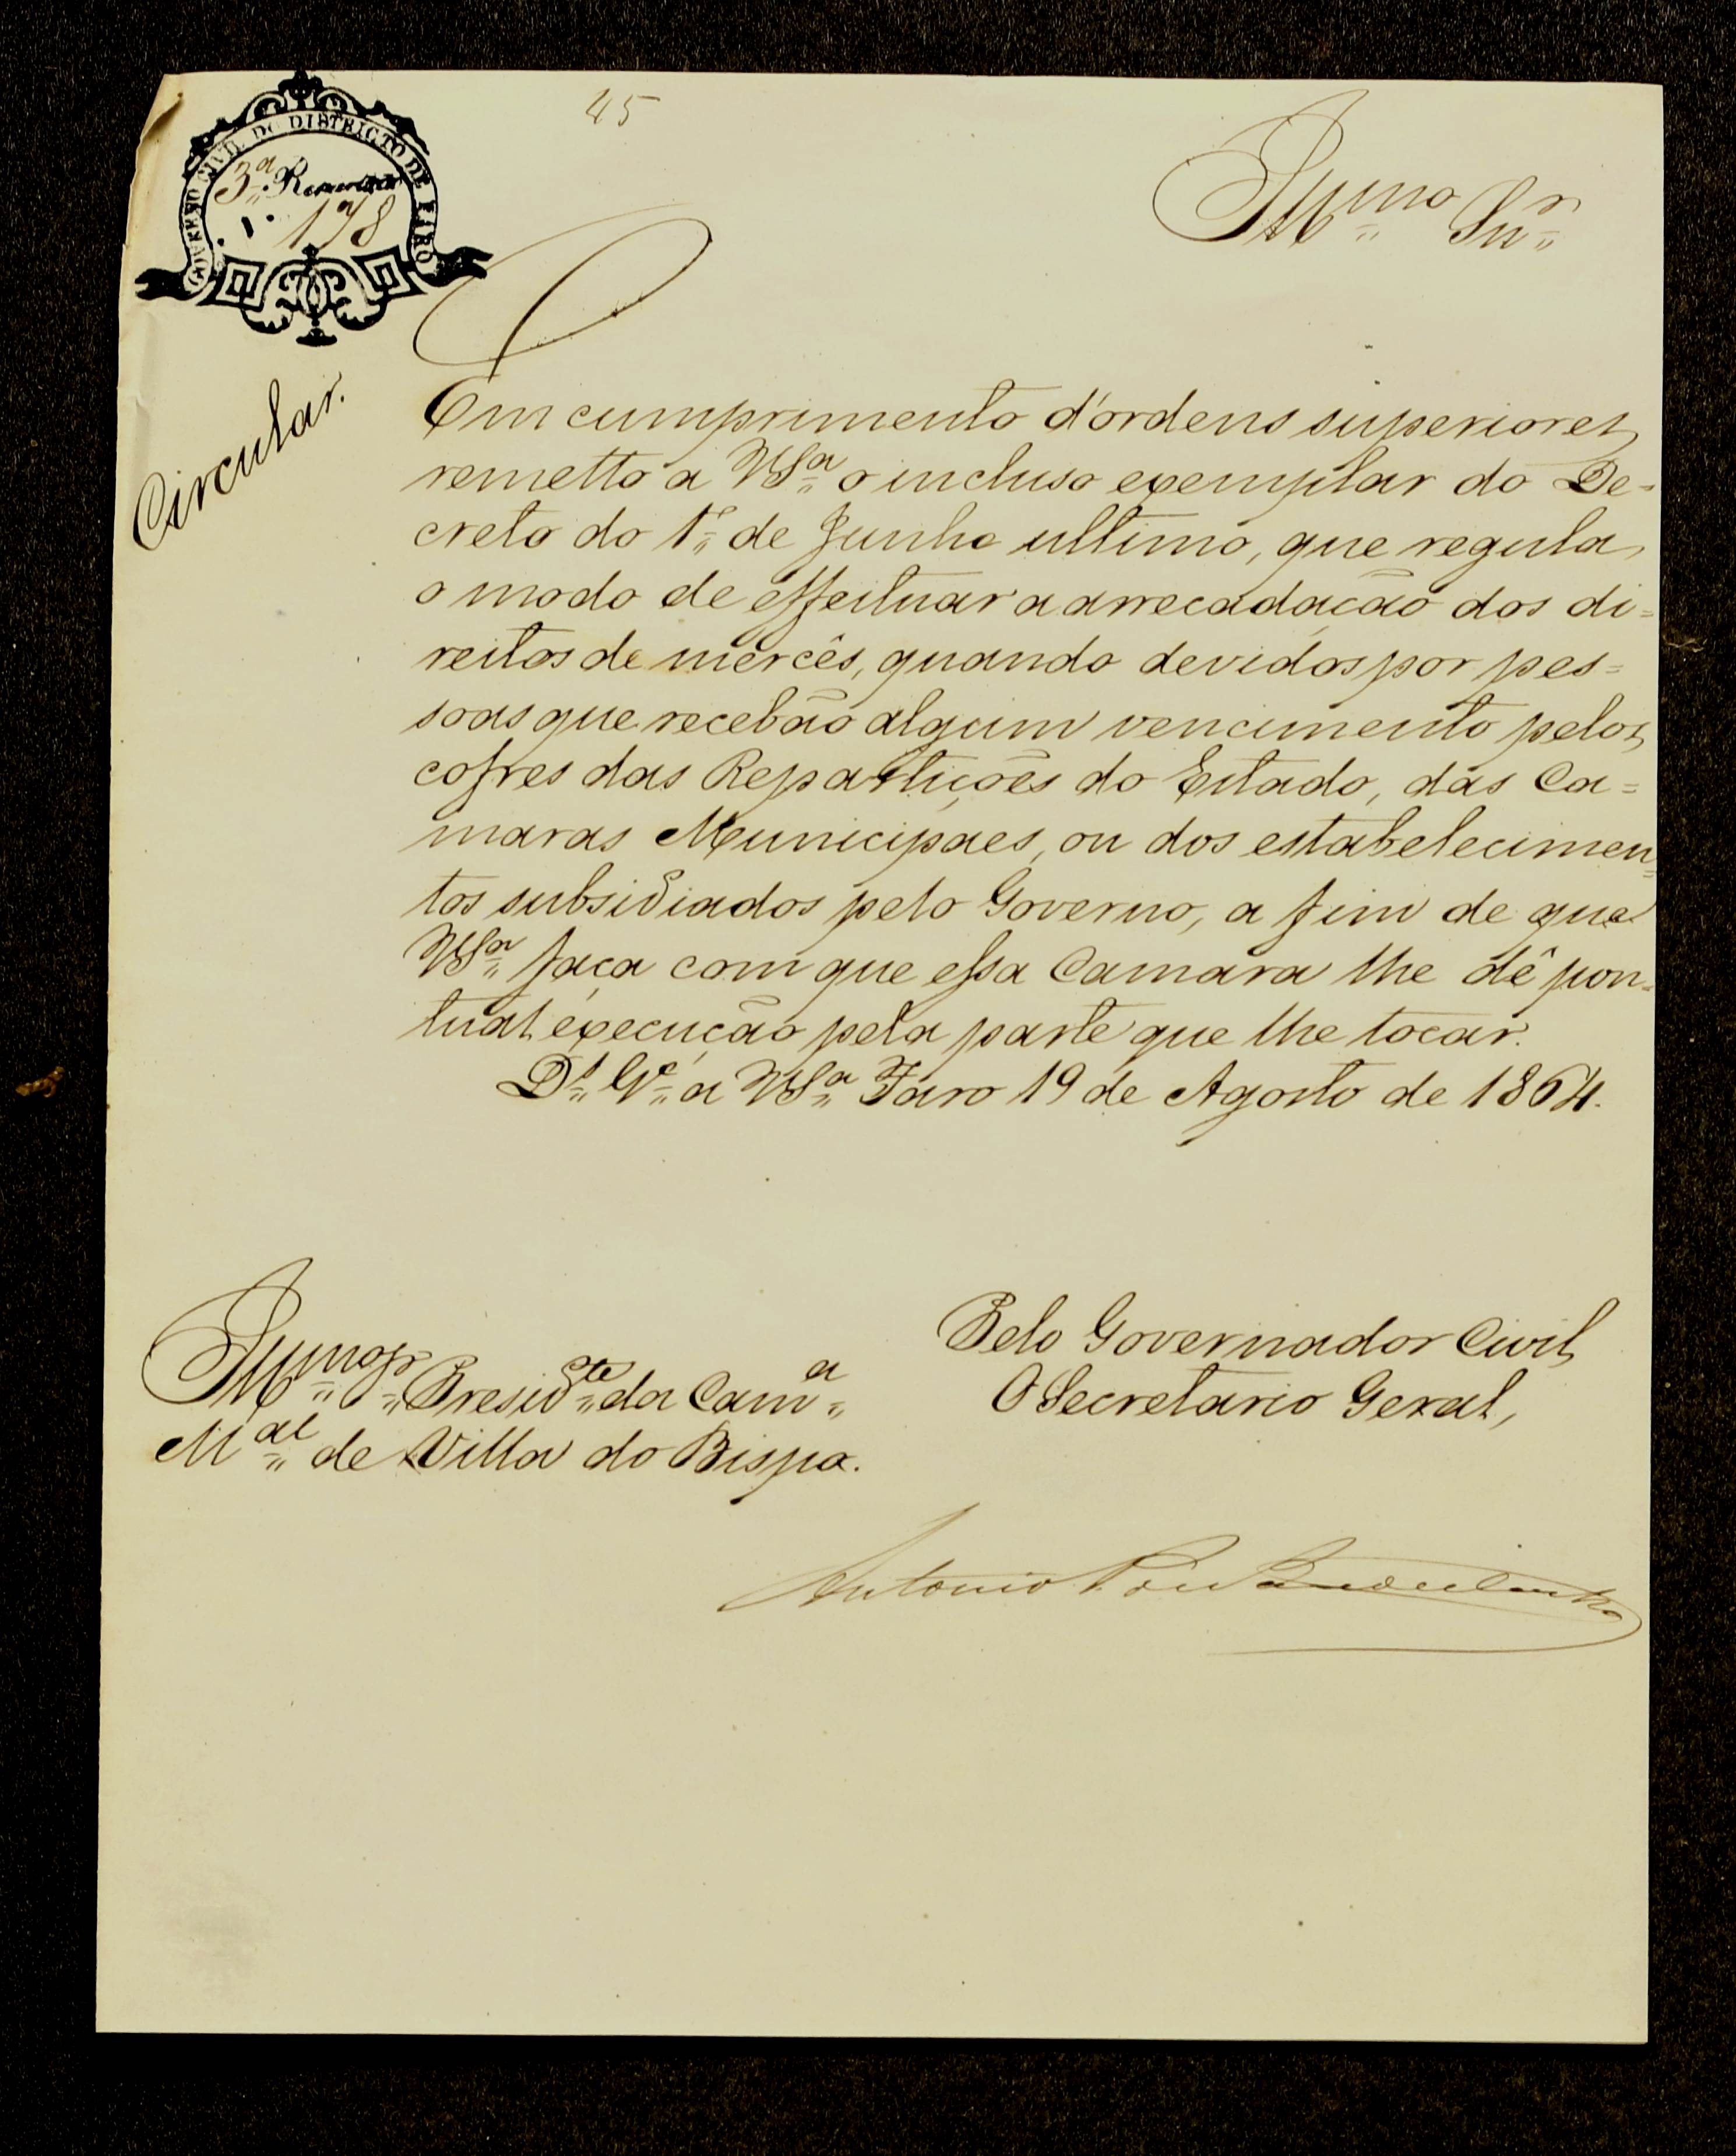 45
GOVERNO CIVIL DO DISTRICTO DE FARO
3.ª
178
Illmo Snr
Circular.
Em cumprimento d'ordens superiores
remetto a VSª o incluso exemplar do De=
creto do 1º de Junho ultimo, que regula
o modo de effeituar a arrecadação dos di=
reitos de mercês, quando devidos por pes=
soas que recebão algum vencimento pelos
cofres das Repartições do Estado, das Ca=
maras Municipaes, ou dos estabelecimen=
tos subsidiados pelo Governo, a fim de que
VSª faça com que essa Camara lhe dê pon=
tual execução pela parte que lhe tocar.
Ds Ge a VSª Faro 19 de Agosto de 1864.
Pelo Governador Civil
O Secretario Geral,
Illmo Sr Presidte da Camª
Mal de Villa do Bispo.
Antonio